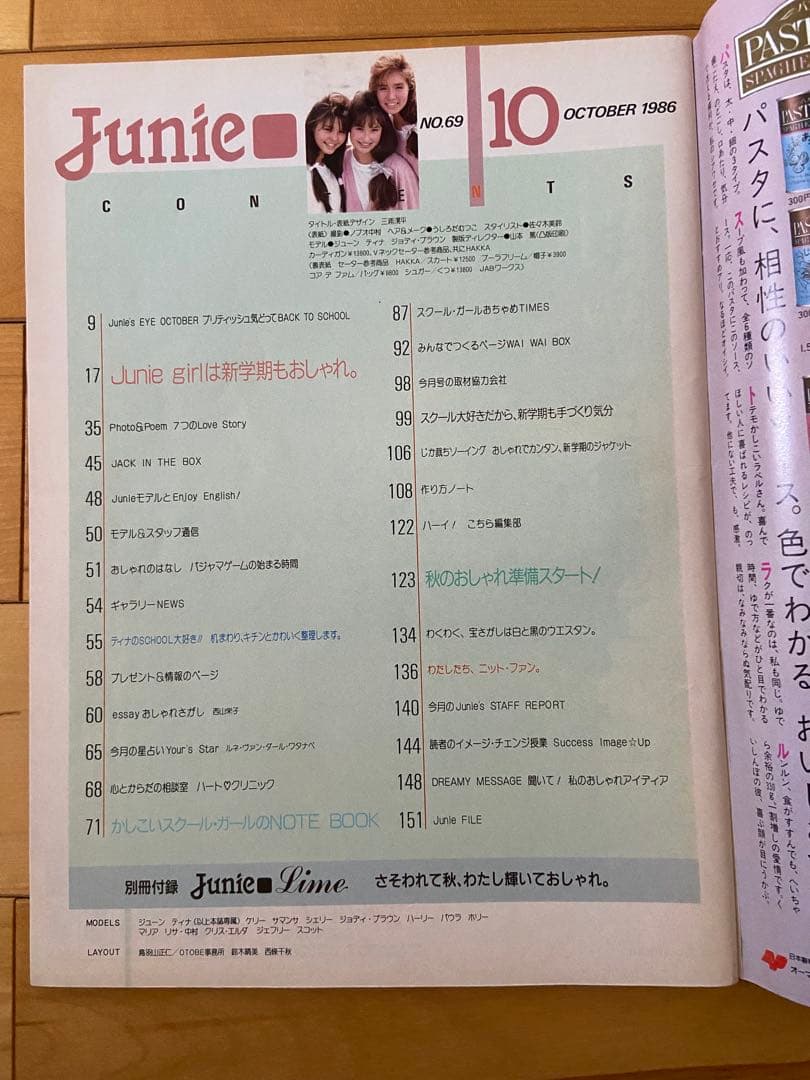 Junie
NO.69
10
OCTOBER 1986
CONTENTS
タイトル・表紙デザイン 三雨漢平
〈表紙〉撮影●ノブオ中村 ヘア&メーク●うしろだむつこ スタイリスト●佐々木美鈴
モデル●ジューン ティナ ジョディ・ブラウン 製版ディレクター●山本 篤(凸版印刷)
カーディガン¥13800、Vネックセーター参考商品、共にHAKKA
〈裏表紙 セーター参考商品 HAKKA/スカート¥12500 プーラフリーム/帽子¥3900
コア デ ファム/バッグ¥9800 シュガー/くつ¥13800 JABワークス〉
9 Junie's EYE OCTOBER ブリティッシュ気どってBACK TO SCHOOL
17 Junie girlは新学期もおしゃれ。
35 Photo&Poem 7つのLove Story
45 JACK IN THE BOX
48 JunieモデルとEnjoy English!
50 モデル&スタッフ通信
51 おしゃれのはなし パジャマゲームの始まる時間
54 ギャラリーNEWS
55 ティナのSCHOOL大好き!! 机まわり、キチンとかわいく整理します。
58 プレゼント&情報のページ
60 essayおしゃれさがし 西山栄子
65 今月の星占いYour's Star ルネ・ヴァン・ダール・ワタナベ
68 心とからだの相談室 ハート♡クリニック
71 かしこいスクール・ガールのNOTE BOOK
87 スクール・ガールおちゃめTIMES
92 みんなでつくるページWAI WAI BOX
98 今月号の取材協力会社
99 スクール大好きだから、新学期も手づくり気分
106 じか裁ちソーイング おしゃれでカンタン、新学期のジャケット
108 作り方ノート
122 ハーイ! こちら編集部
123 秋のおしゃれ準備スタート!
134 わくわく、宝さがしは白と黒のウエスタン。
136 わたしたち、ニット・ファン。
140 今月のJunie's STAFF REPORT
144 読者のイメージ・チェンジ授業 Success Image☆Up
148 DREAMY MESSAGE 聞いて! 私のおしゃれアイディア
151 Junie FILE
別冊付録 Junie Lime さそわれて秋、わたし輝いておしゃれ。
MODELS ジューン ティナ(以上本誌専属) ケリー サマンサ シェリー ジョディ・ブラウン ハーリー パウラ ホリー
マリア リサ・中村 クリス・エルダ ジェフリー スコット
LAYOUT 鳥羽山正仁/OTOBE事務所 鈴木晴美 西條千秋
PAST
SPAGHE
パスタに、相性のいい
ス。色でわかる
300円